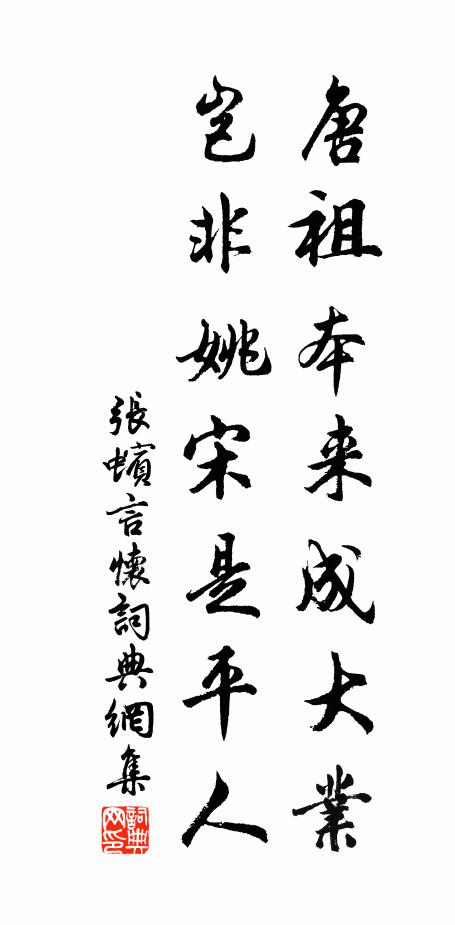 唐祖本来成大業
岂非姚宋是平人
張蠙言懷詞典網集
詞典网印